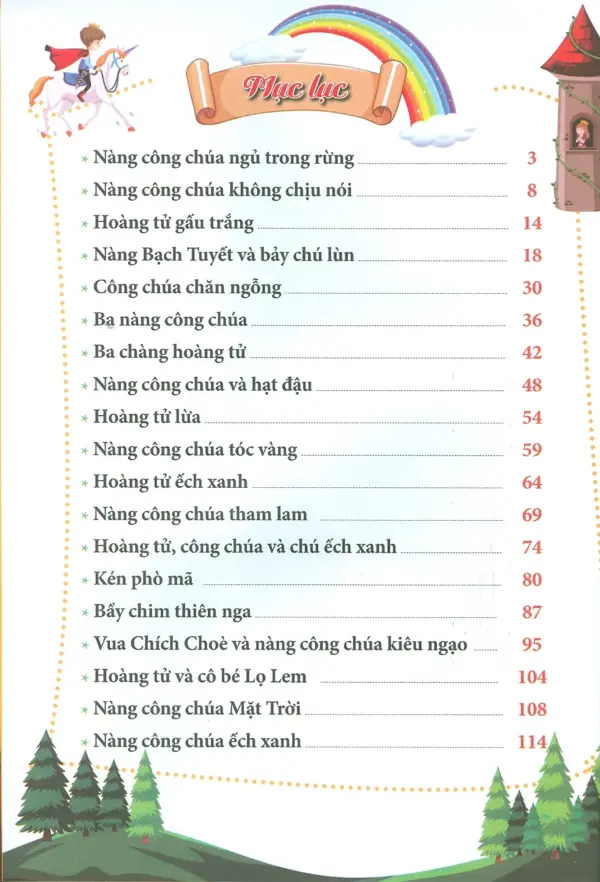 Mục lục
* Nàng công chúa ngủ trong rừng 3
* Nàng công chúa không chịu nói 8
* Hoàng tử gấu trắng 14
* Nàng Bạch Tuyết và bảy chú lùn 18
* Công chúa chăn ngỗng 30
* Ba nàng công chúa 36
* Ba chàng hoàng tử 42
* Nàng công chúa và hạt đậu 48
* Hoàng tử lừa 54
* Nàng công chúa tóc vàng 59
* Hoàng tử ếch xanh 64
* Nàng công chúa tham lam 69
* Hoàng tử, công chúa và chú ếch xanh 74
* Kén phò mã 80
* Bầy chim thiên nga 87
* Vua Chích Choè và nàng công chúa kiêu ngạo 95
* Hoàng tử và cô bé Lọ Lem 104
* Nàng công chúa Mặt Trời 108
* Nàng công chúa ếch xanh 114